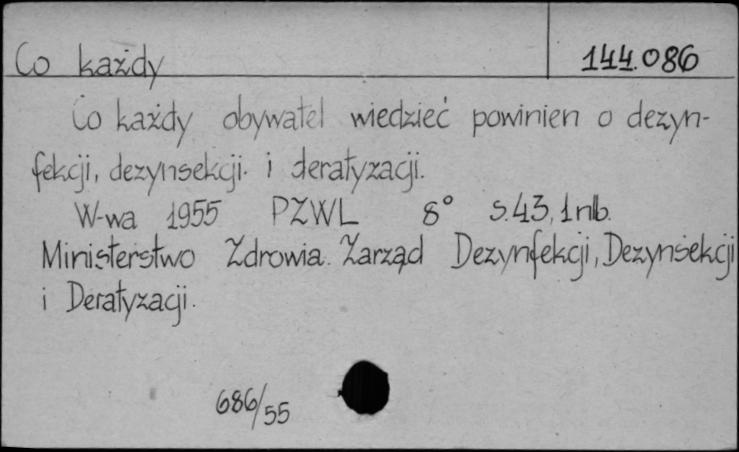 Co każdy 144.086
Co każdy obywatel wiedzieć powinien o dezyn-
fekcji, dezynsekcji i deratyzacji.
W-wa 1955 PZWL 8° s.43, 1 nlb.
Ministerstwo Zdrowia. Zarząd Dezynfekcji, Dezynsekcji
i Deratyzacji.
686/55